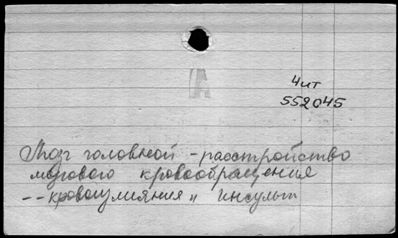 А
Чит
552045
Мозг головной - расстройство
мозгового кровообращения
-- кровоизлияния, инсульт